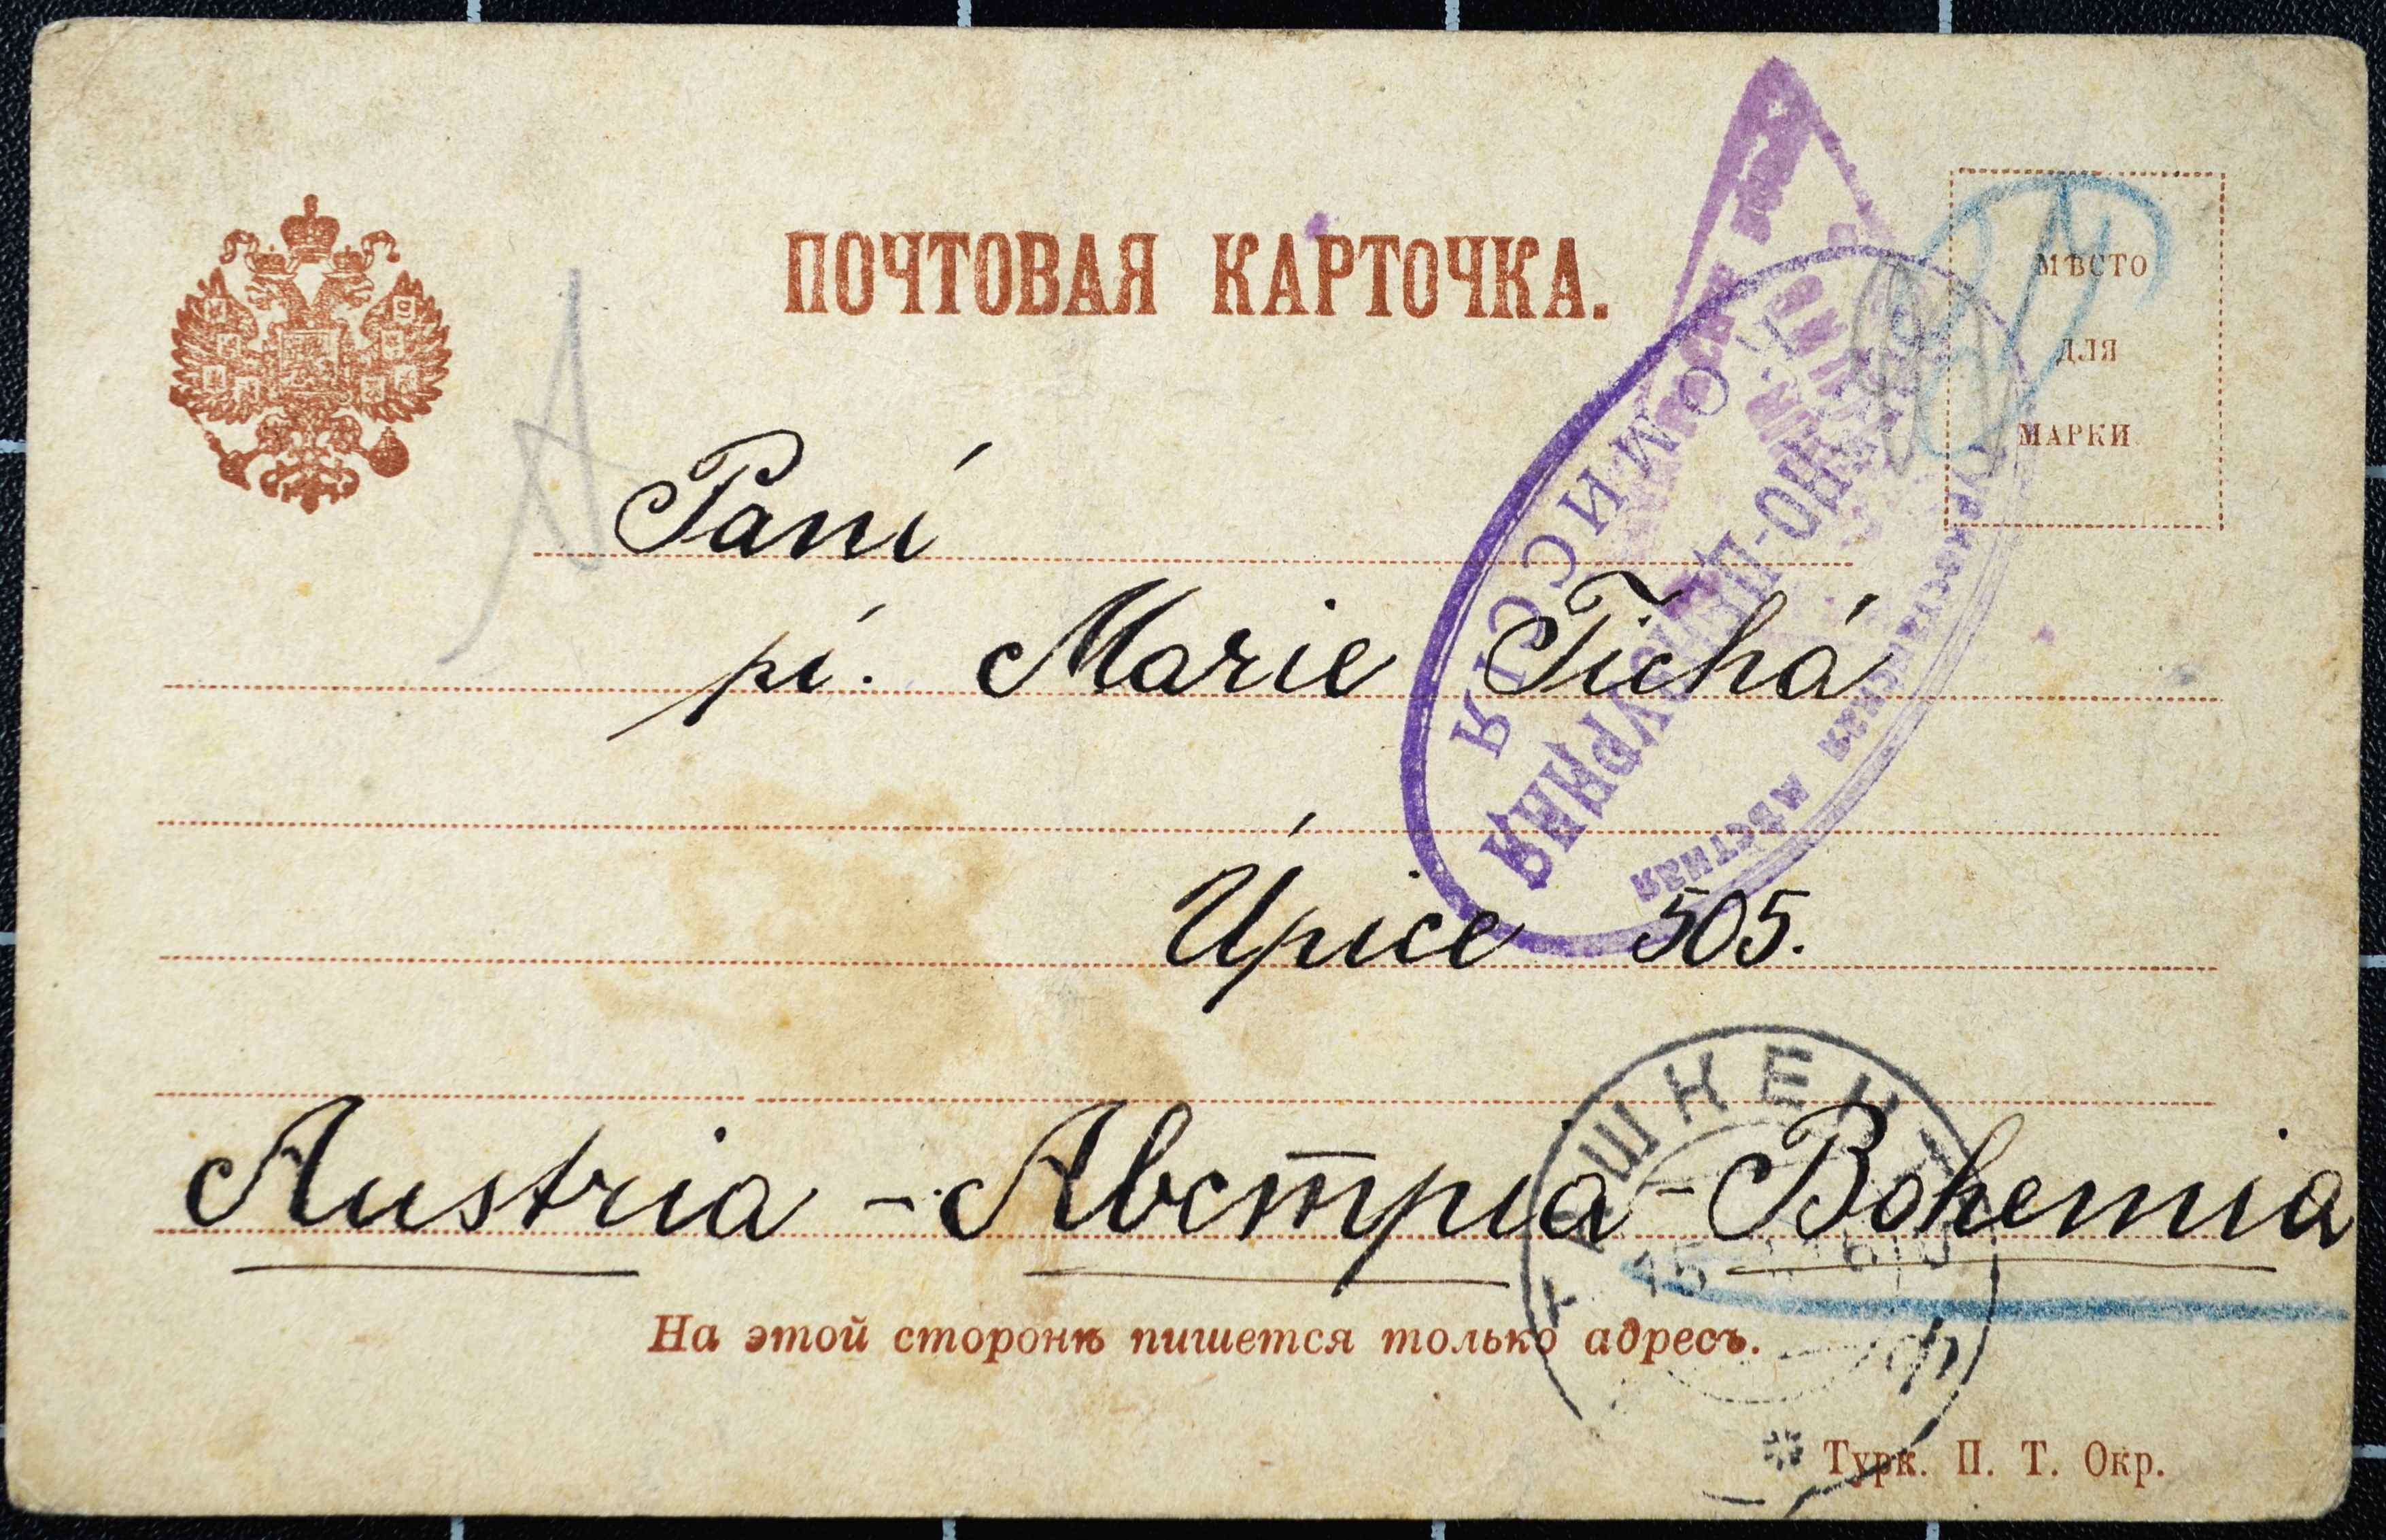 ПОЧТОВАЯ КАРТОЧКА.
МѢСТО
ДЛЯ
МАРКИ
Paní
pí. Marie Tichá
Úpice 505.
Austria - Австріа - Bohemia
На этой сторонѣ пишется только адресъ.
Турк. П. Т. Окр.
КОМИССІЯ
ВОЕННО-ЦЕНЗУРНАЯ
ТУРКЕСТАНСКАЯ МѢСТНАЯ
ТАШКЕНТ